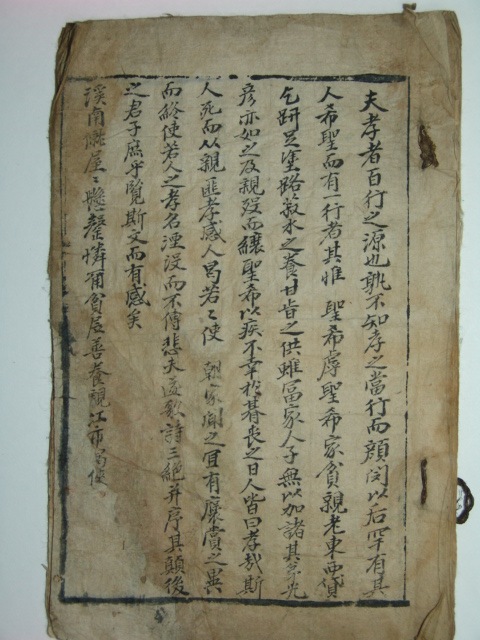 夫孝者百行之源也孰不知孝之當行而顔閔以后罕有其
人希聖而有一行者其惟 聖希乎聖希家貧親老東西貸
乞趼足塗路菽水之養甘旨之供雖富家人子無以加諸其學
彦亦如之及親歿而 聖希以疾不幸於朞喪之日人皆曰孝哉斯
人死而从親匪孝感人曷若之使 朝家聞之宜有褒賞之異
而終使若人之孝名湮沒而不傳悲夫遂歌詩三絶并序其顛後
之君子庶乎覽斯文而有感矣
溪南 屋懸罄憐爾貧居善養親江市